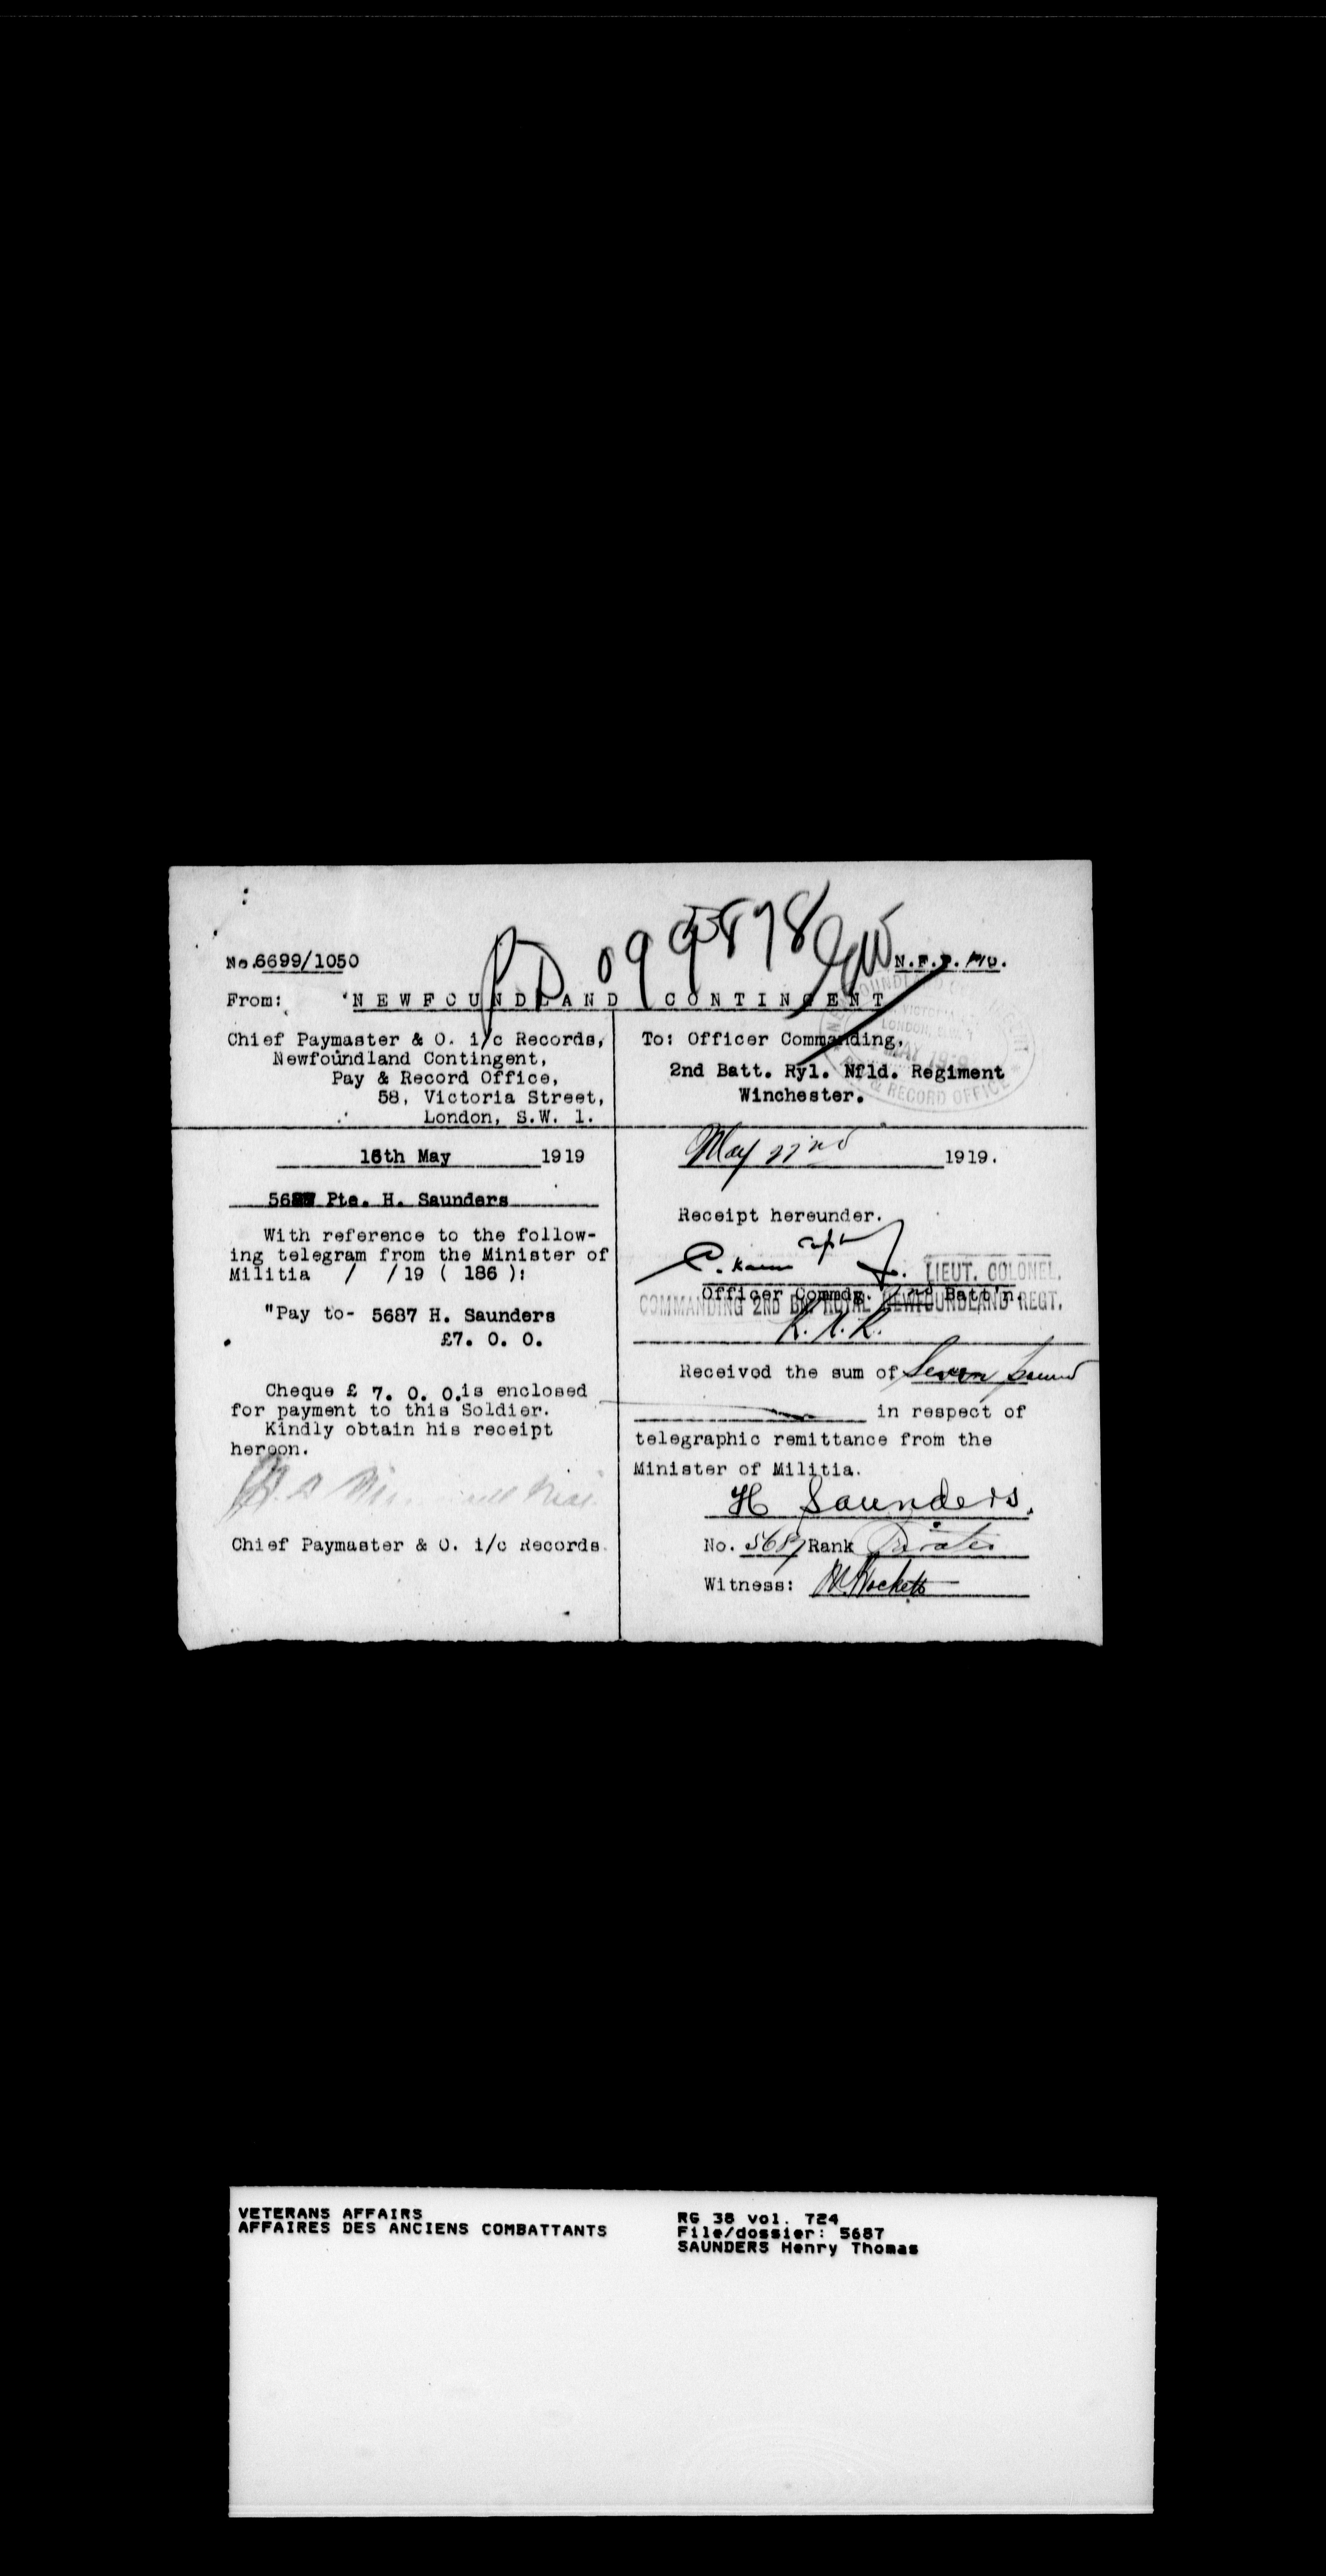 PD 099878
No.6699/1050
From: NEWFOUNDLAND CONTINGENT
Chief Paymaster & O. i/c Records,
Newfoundland Contingent,
Pay & Record Office,
58, Victoria Street,
London, S.W. 1.
To: Officer Commanding,
2nd Batt. Ryl. Nfld. Regiment
Winchester.
MAY 1919
& RECORD OFFICE
16th May 1919
5687 Pte. H. Saunders
With reference to the follow-
ing telegram from the Minister of
Militia / /19 ( 186 ):
"Pay to- 5687 H. Saunders
£7. 0. 0.
Cheque £ 7. 0. 0.is enclosed
for payment to this Soldier.
Kindly obtain his receipt
hereon.
Chief Paymaster & O. i/c Records.
May 22nd 1919.
Receipt hereunder.
Capt
LIEUT. COLONEL.
Officer Commdg. 2nd Batt'n.
COMMANDING 2ND BN ROYAL NEWFOUNDLAND REGT.
R.N.R.
Received the sum of Seven pound
in respect of
telegraphic remittance from the
Minister of Militia.
H Saunders.
No. 5687 Rank Private
Witness:
VETERANS AFFAIRS
AFFAIRES DES ANCIENS COMBATTANTS
RG 38 vol. 724
File/dossier: 5687
SAUNDERS Henry Thomas